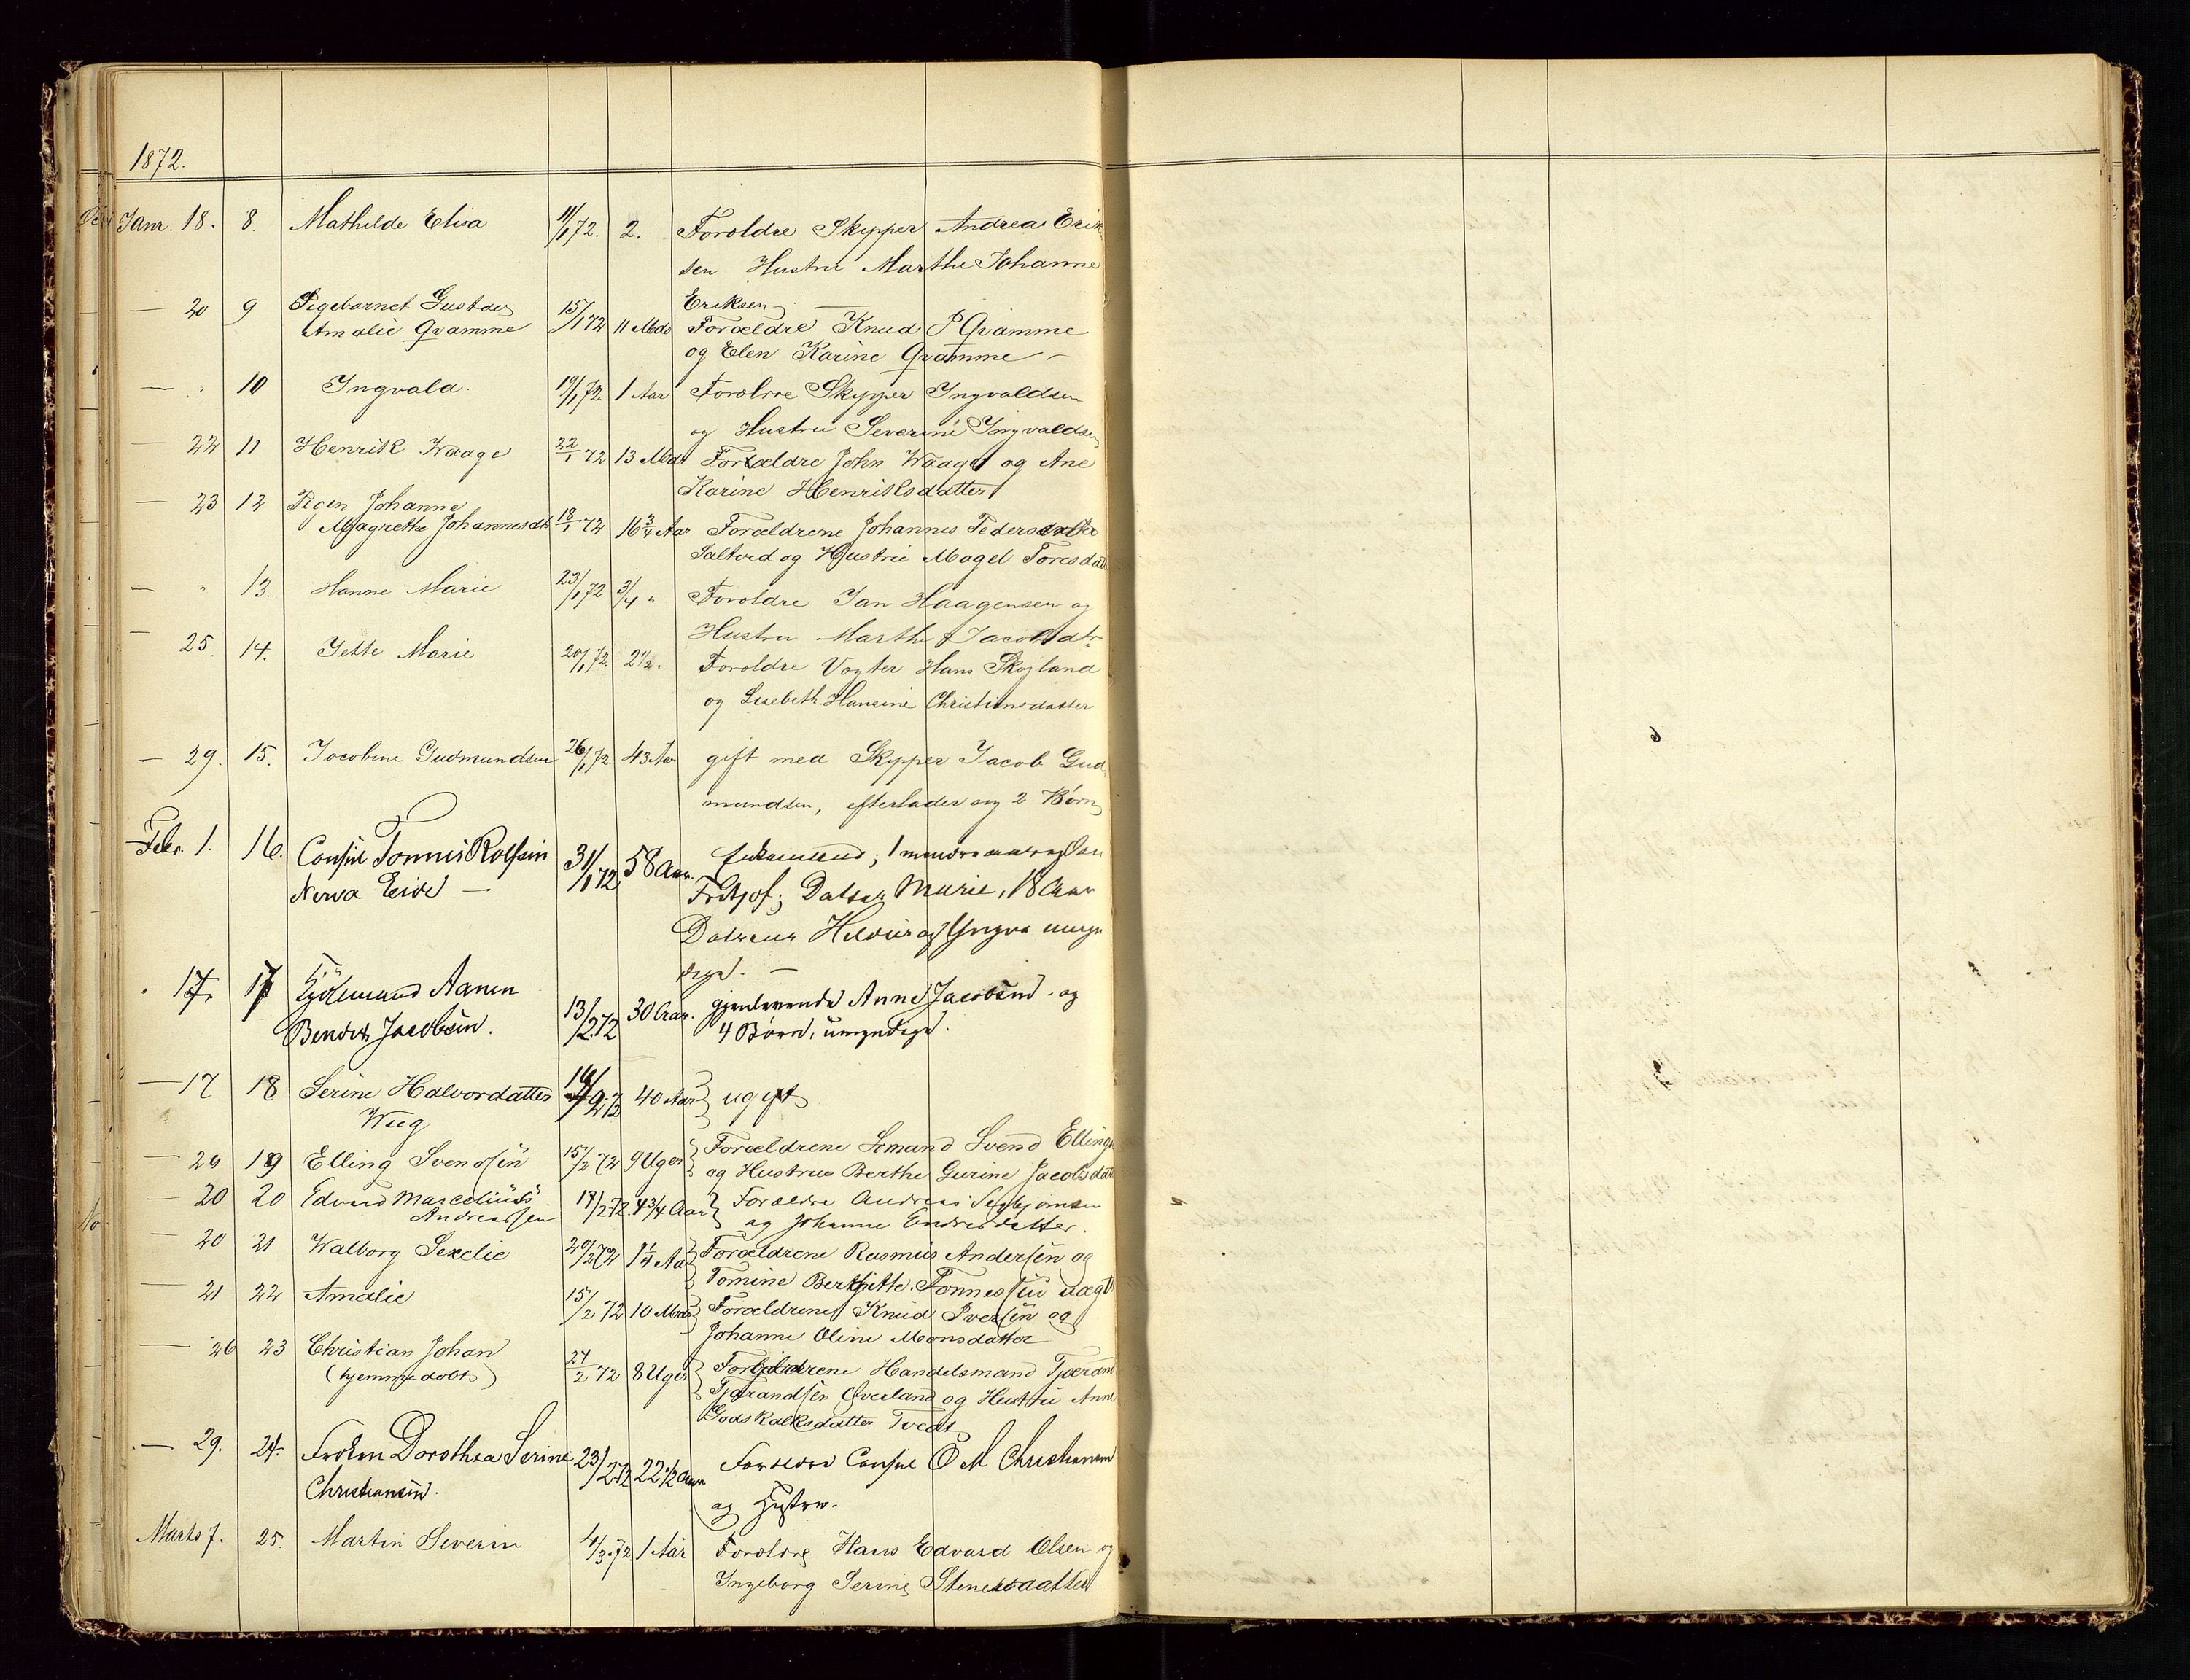 1872.
Janr. 18. 8. Mathilde Elisa 11/1 72. 2. Foroldre Skipper Andreas Erik
sen Hustru Marthe Johanne
Eriksen
— 20 9 Pigebarnet Gustav 15/1 72 11 Mdr Forældre Knud P Qvamme
Amalie Qvamme og Elen Karine Qvamme —
— " 10 Ingvald. 19/1 72 1 Aar Forolrre Skipper Ingvaldsen
og Hustru Severine Ingvaldsen
— 22 11 Henrik Waage 22/1 72 13 Mdr Forældre John Waage og Ane
Karine Henriksdatter
— 23 12 Pigen Johanne
Magrethe Johannesdtr 18/1 72 16 3/4 Aar Forældrene Johannes Pedersen
Saltved og Hustru Magel Toresdatt
— " 13. Hanne Marie 23/1 72 3/4 " Foroldre Jan Haagensen og
Hustru Marthe Jacobsdtr
— 25. 14. Jette Marie 20/1 72. 2 1/2. Foroldre Vogter Hans
og Lisebeth Hansine Christiansdatter
— 29. 15. Jocobine Gudmundsen 26/1 72. 43 Aar gift med Skipper Jacob Gud
mundsen, efterlader sig 2 Børn
Febr. 1. 16. Consul Tonnes Rolfsen 31/1 72 58 Aar. Enkemand; 1
Eide — Fritjof; Datter Marie, 18 Aar
og Yngva umyn
dige. —
" 17. 17 Sjömand Aanen
Jacobsen. 13/2 72 30 Aar. gjenlevende Anne Jacobsen og
4 Børn, umyndige.
— 17 18 Serine Halvordatter 2 72 40 Aar ugift
Wiig
— 20 19 Elling Svendsen 15/2 72 9 Uger Forældrene Sømand Svend Elling
og Hustrue Berthe Gurine Jacobsdatt
— 20 20 Edvard Marcelius
Andreassen 18/2 72. 4 3/4 Aar Foræ­ldre Andreas
og Johanne Endresdatter.
— 20 21 Walborg Sexelie 20/2 72 1 1/4 Aar Forældrene Rasmus Andersen og
Tomine Berthitte Tonnessen
— 21 22 Amalie 15/2 72 10 Mdr Forældrene Knud Iversen og
Johanne Oline Monsdatter
— 26 23 Christian Johan 24/2 72 8 Uger Forældrene Handelsmand Tjeran
(hjemmedøbt) Tjerandsen Qveland og Hustru Anne
Godskalksdatter Tvedt
— 29. 24. Frøken Dorothea Serine 23/2 72 22 1/2 Aar Forældre Consul O M Christiansen
Christiansen. og Hustru.
Marts 7. 25. Martin Severin 4/3 72 1 Aar Foroldre Hans Edvard Olsen og
Ingeborg Serine Stenersdatter